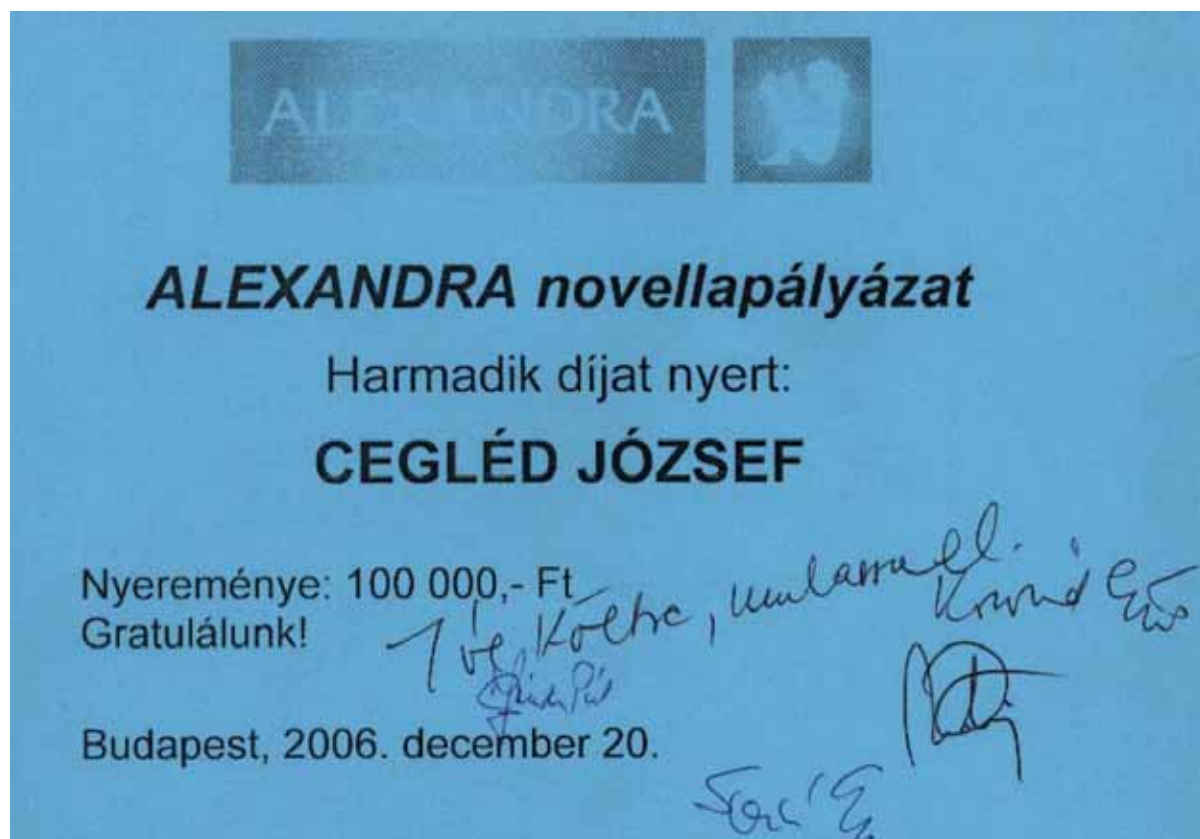 ALEXANDRA
ALEXANDRA novellapályázat
Harmadik díjat nyert:
CEGLÉD JÓZSEF
Nyereménye: 100 000,- Ft
Gratulálunk!
Budapest, 2006. december 20.